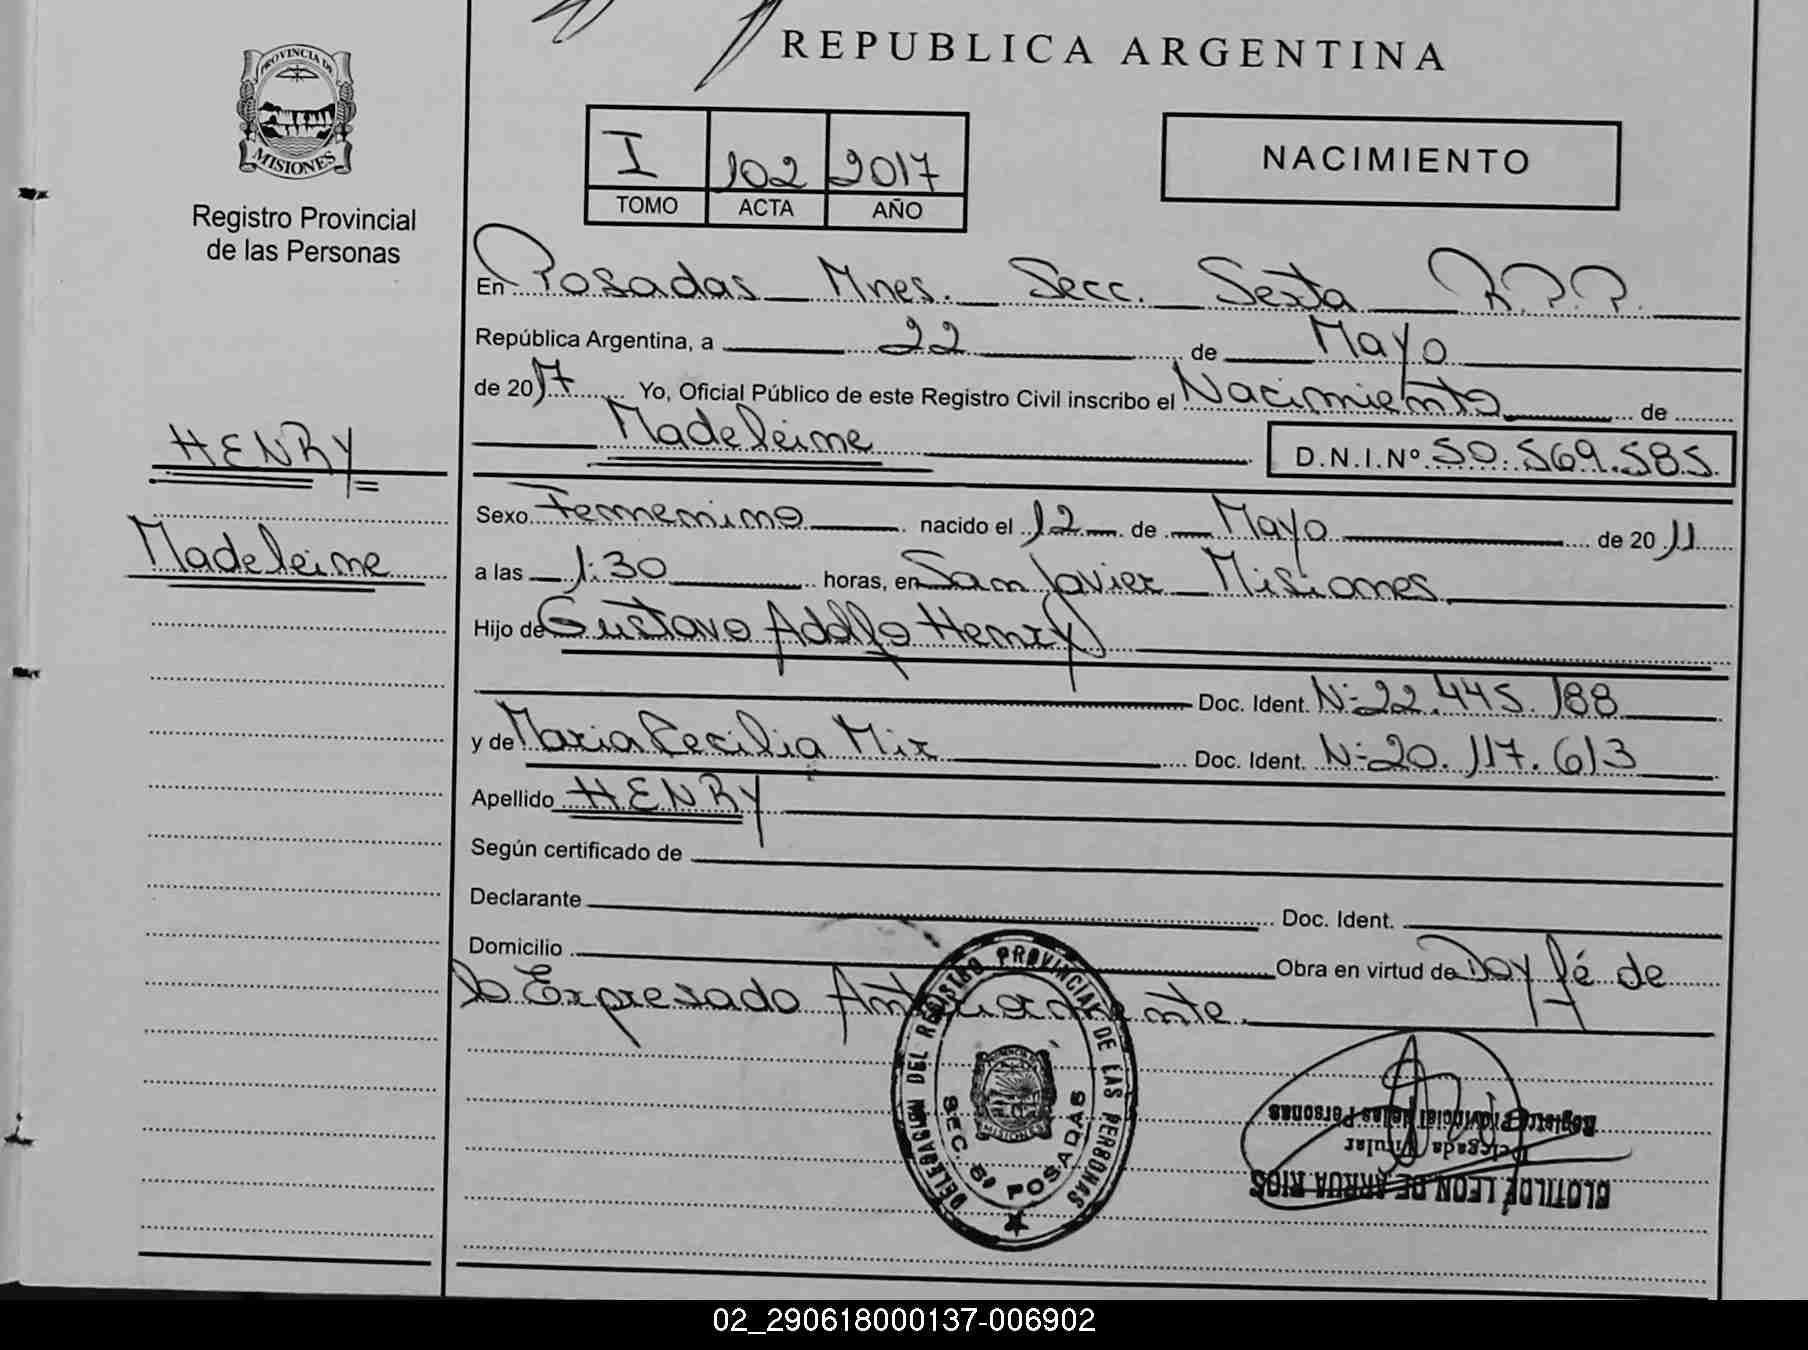 PROVINCIA DE
MISIONES
Registro Provincial
de las Personas
HENRY
Madeleine
REPUBLICA ARGENTINA
I 102 2017
TOMO ACTA AÑO
NACIMIENTO
En Posadas Mnes. Secc. Sexta R.P.P.
República Argentina, a 22 de Mayo
de 2017 Yo, Oficial Público de este Registro Civil inscribo el Nacimiento de
Madeleine D.N.I.Nº 50.569.585.
Sexo Femenino nacido el 12 de Mayo de 2011
a las 1:30 horas, en San Javier Misiones
Hijo de Gustavo Adolfo Henry
Doc. Ident. Nº 22.445.188
y de Maria Cecilia Mir Doc. Ident. Nº 20.117.613
Apellido HENRY
Según certificado de
Declarante Doc. Ident.
Domicilio Obra en virtud de Doy fé de
lo Expresado Anteriormente.
DELEGACION DEL REGISTRO PROVINCIAL DE LAS PERSONAS
SEC. 6ª POSADAS
MISIONES
CLOTILDE LEON DE ARRUA RIOS
Delegada Titular
Registro Provincial de las Personas
02_290618000137-006902